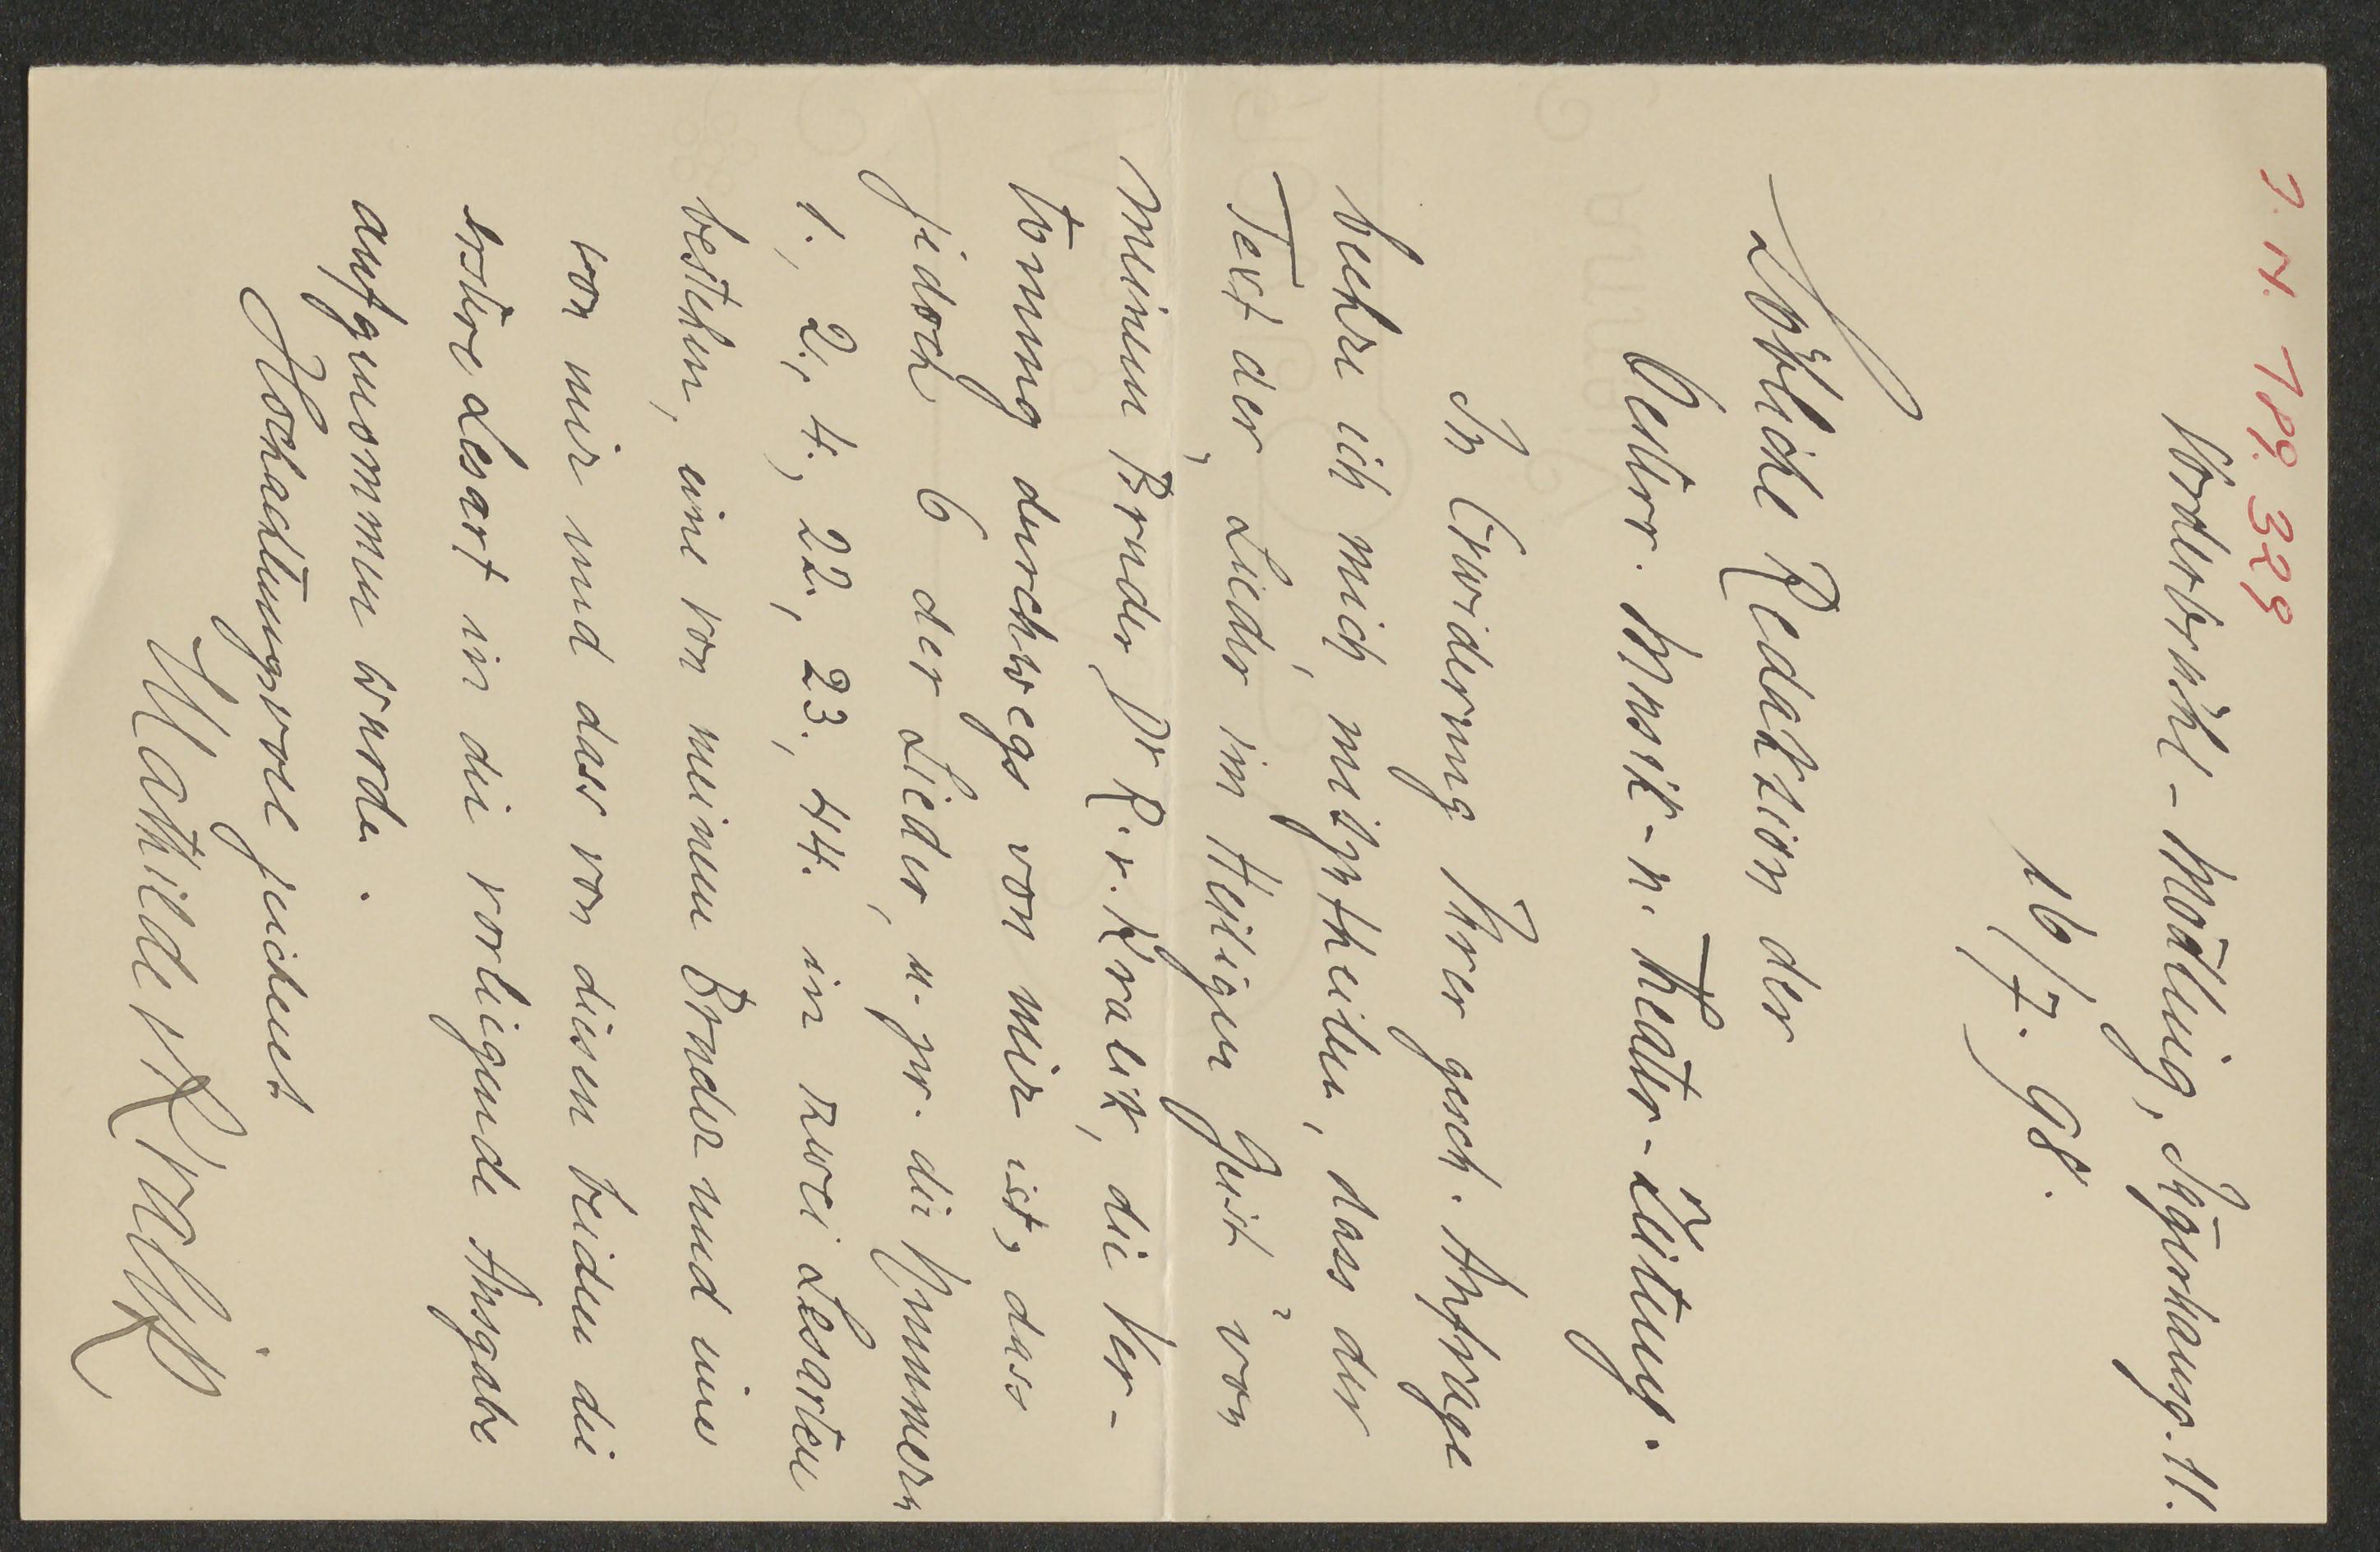 I. N. 189.329
Vorderbrühl-Mödling, Jägerhausg. 11.
16/7. 98.
Löbliche Redaktion der
Oesterr. Musik- u. Theater-Zeitung.
In Erwiderung Ihrer gesch. Anfrage
beehre ich mich mitzutheilen, dass der
Text der „Lieder im Heiligen Geist" von
meinem Bruder, Dr R. v. Kralik, die Ver-
tonung durchwegs von mir ist, dass
jedoch 6 der Lieder, u. zw. die Nummern
1., 2., 4., 22., 23., 44. in zwei Lesarten
bestehen, eine von meinem Bruder und eine
von mir und dass von diesen beiden die
erstere Lesart in die vorliegende Ausgabe
aufgenommen wurde.
Hochachtungsvoll zeichnet
Mathilde v Kralik